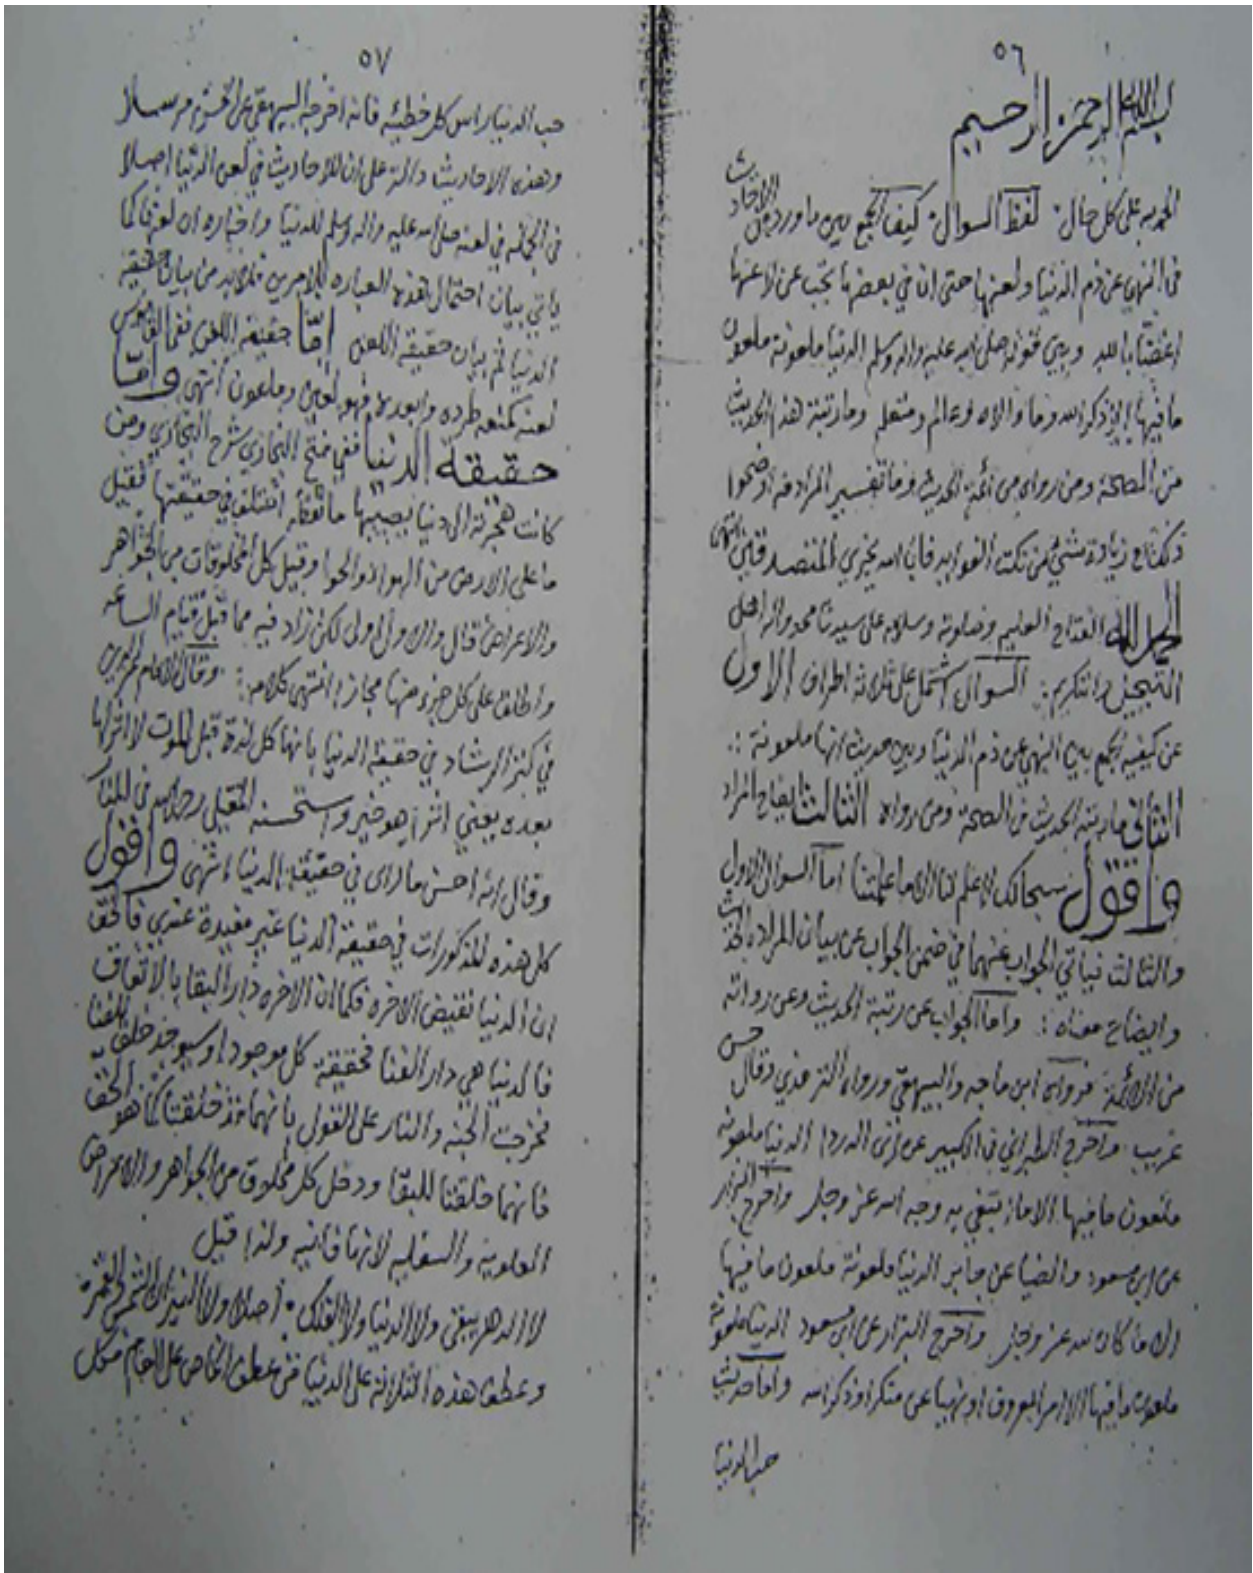 ٥٦
بسم الله الرحمن الرحيم
الحمد لله على كل حال لفظ السوال كيف الجمع بين ما ورد من الاحاديث
في النهي عن ذم الدنيا ولعنها حتى ان في بعضها عن لاعنها
وبين قوله صلى الله عليه واله وسلم الدنيا ملعونة ملعون
ما فيها الا ذكر الله وما والاه وعالم ومتعلم وما رتبة هذا الحديث
من الصحة ومن رواه من أئمة الحديث وما تفسير المراد منه اوضحوا
زيادة شي من نكت الفوايد فان الله يجزي المتصدقين انتهى
الحمد لله الفتاح العليم وصلوته وسلامه على سيدنا محمد واله اهل
التبجيل والتكريم السوال اشتمل على ثلاثة اطراف الاول
عن كيفية الجمع بين النهي عن ذم الدنيا وبين حديث انها ملعونة
الثاني ما رتبة الحديث من الصحة ومن رواه الثالث ايضاح المراد
واقول سبحانك لا علم لنا الا ما علمتنا اما السوال الاول
والثالث فياتي الجواب عنهما في ضمن الجواب عن بيان المراد بالحديث
وايضاح معناه واما الجواب عن رتبة الحديث وعن رواته
من الائمة فرواه ابن ماجه والبيهقي ورواه الترمذي وقال حسن
غريب واخرج الطبراني في الكبير عن ابي الدردا الدنيا ملعونة
ملعون ما فيها الا ما ابتغي به وجه الله عز وجل واخرج البزار
عن ابن مسعود والضيا عن جابر الدنيا ملعونة ملعون ما فيها
الا ما كان لله عز وجل واخرج البزار عن ابن مسعود الدنيا ملعونة
ملعون ما فيها الا امر بالمعروف او نهيا عن منكر او ذكر الله واما حديث
حب الدنيا
٥٧
حب الدنيا راس كل خطيئه فانه اخرجه البيهقي عن الحسن مرسلا
وهذه الاحاديث دالة على ان للاحاديث في لعن الدنيا اصلا
في الجملة في لعنه صلى الله عليه واله وسلم للدنيا واخباره ان لعنها كما
ياتي بيان احتمال هذه العباره للامرين فلابد من بيان حقيقة
الدنيا ثم بيان حقيقة اللعن امّا حقيقة اللعن ففي القاموس
لعنه كمنعه طرده وابعده فهو لعين وملعون انتهى وامّا
حقيقة الدنيا ففي فتح الباري شرح البخاري ومن
كانت هجرته الى دنيا يصيبها ما لفظه اختلف في حقيقتها فقيل
ما على الارض من الهواء والجو وقيل كل المخلوقات من الجواهر
والاعراض قال والاول اولى لكن زاد فيه مما قبل قيام الساعه
واطلق على كل جزء منها مجازا انتهى كلامه وقال الامام
في كنز الرشاد في حقيقة الدنيا بانها كل لذة قبل الموت لا اثر لها
بعده يعني اثرا هو خير واستحسنه المقبلي رحمه الله في المنار
وقال انه احسن ما راى في حقيقة الدنيا انتهى واقول
كل هذه المذكورات في حقيقة الدنيا غير مفيدة عندي فالحق
ان الدنيا نقيض الاخره فكما ان الاخره دار البقا بالاتفاق
فالدنيا هي دار الفنا فحقيقة كل موجود او سيوجد خلق للفنا
فخرجت الجنه والنار على القول بانهما قد خلقتا كما هو الحق
فانهما خلقتا للبقا ودخل كل مخلوق من الجواهر والاعراض
العلويه والسفليه لانها فانيه ولذا قيل
لا الدهر يبقى ولا الدنيا ولا الفلك اصلا ولا النيران الشمس والقمر
وعطف هذه الثلاثة على الدنيا من عطف الخاص على العام فكل